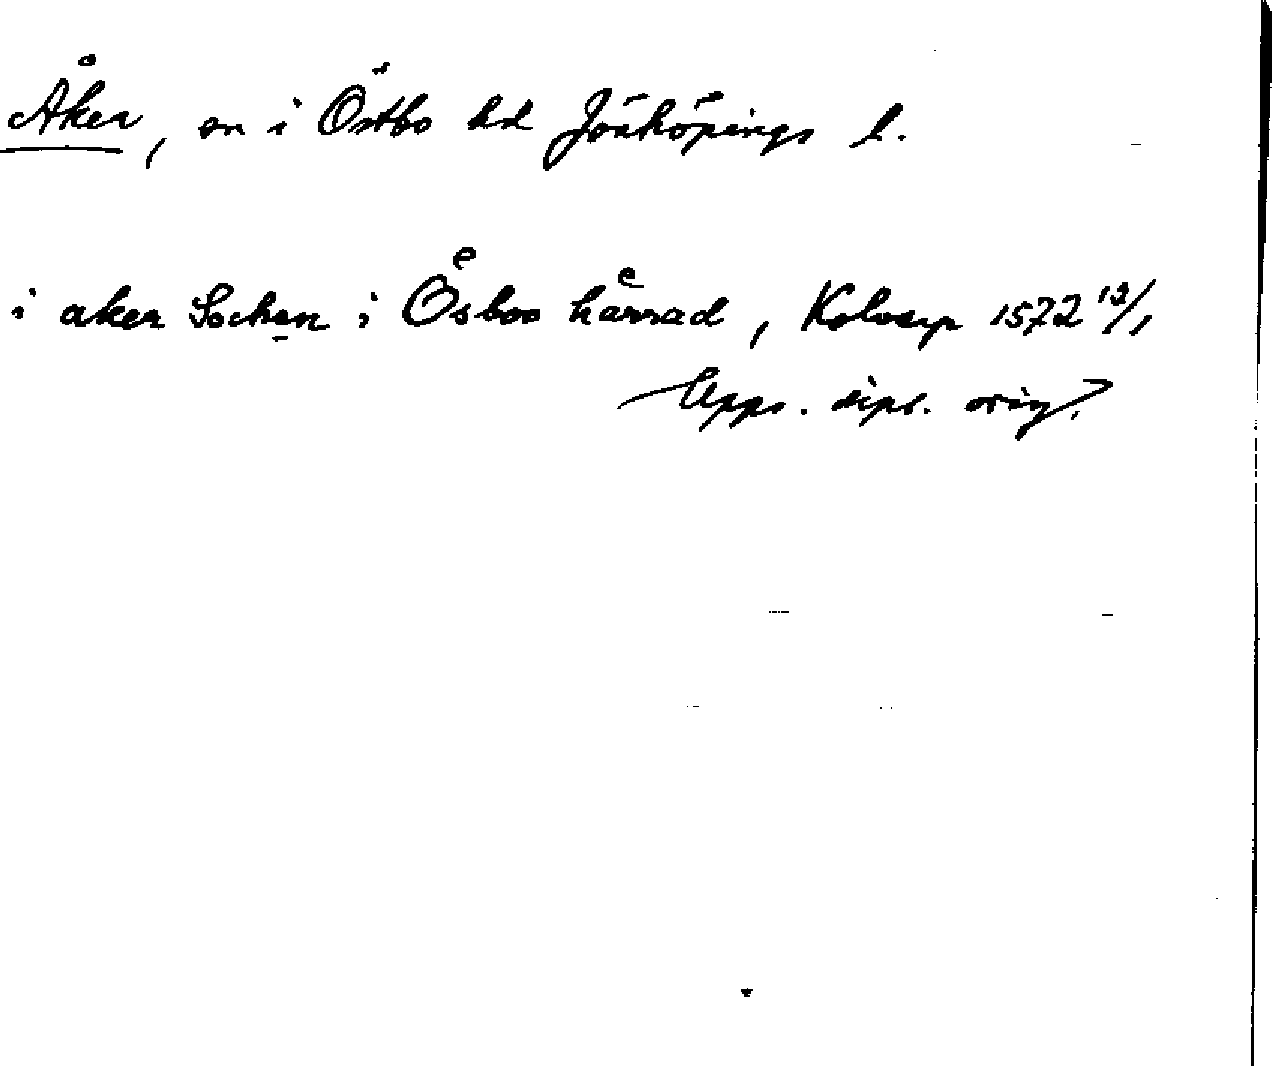 Åker, sn i Östbo hd Jönköpings l.
i aker Sochen i Oͤsboo haͤrrad, Kolvarp 1572 12/1
Upps. dipl. orig.